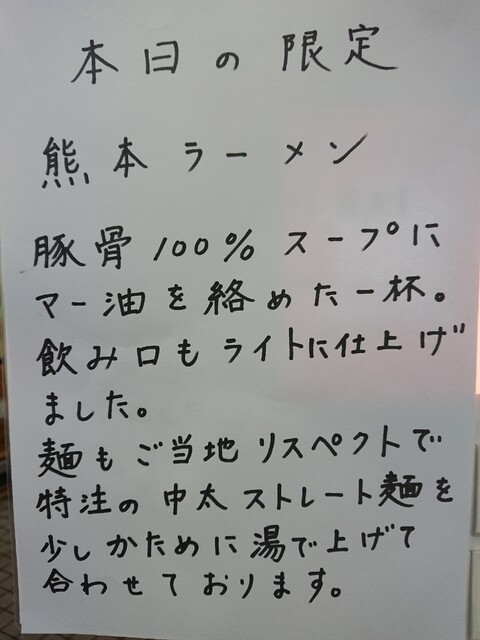 本日の限定
熊本ラーメン
豚骨100%スープに
マー油を絡めた一杯。
飲み口もライトに仕上げ
ました。
麺もご当地リスペクトで
特注の中太ストレート麺を
少しかために湯で上げて
合わせております。